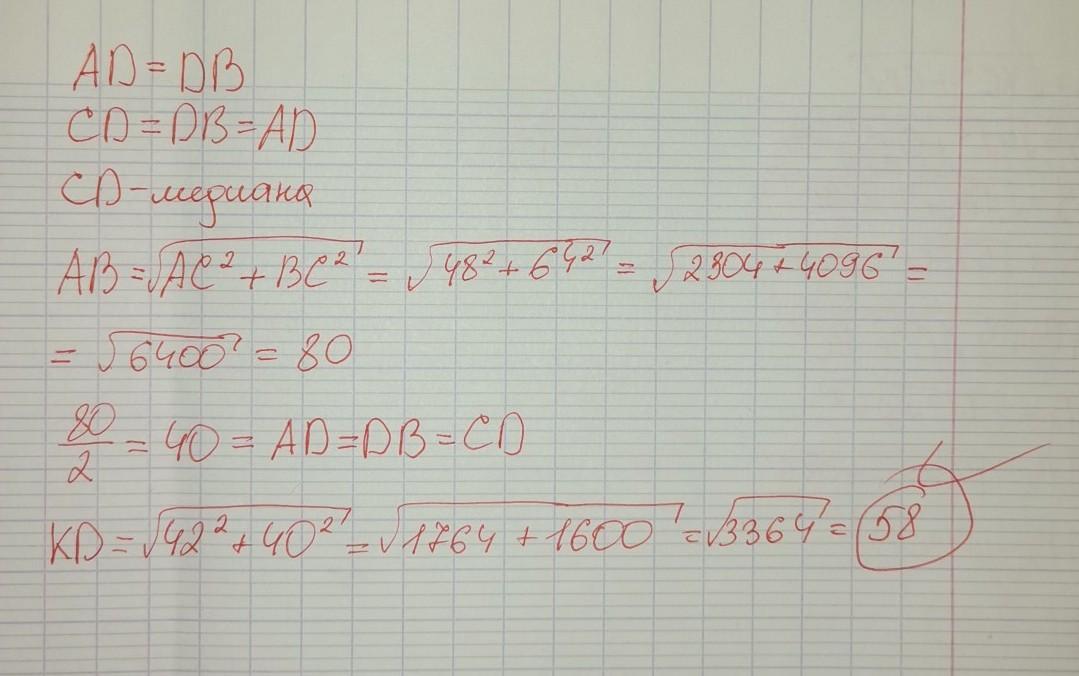 AD = DB
CD = DB = AD
CD - медиана
AB = √AC² + BC² = √48² + 64² = √2304 + 4096 =
= √6400 = 80
80/2 = 40 = AD = DB = CD
KD = √42² + 40² = √1764 + 1600 = √3364 = 58